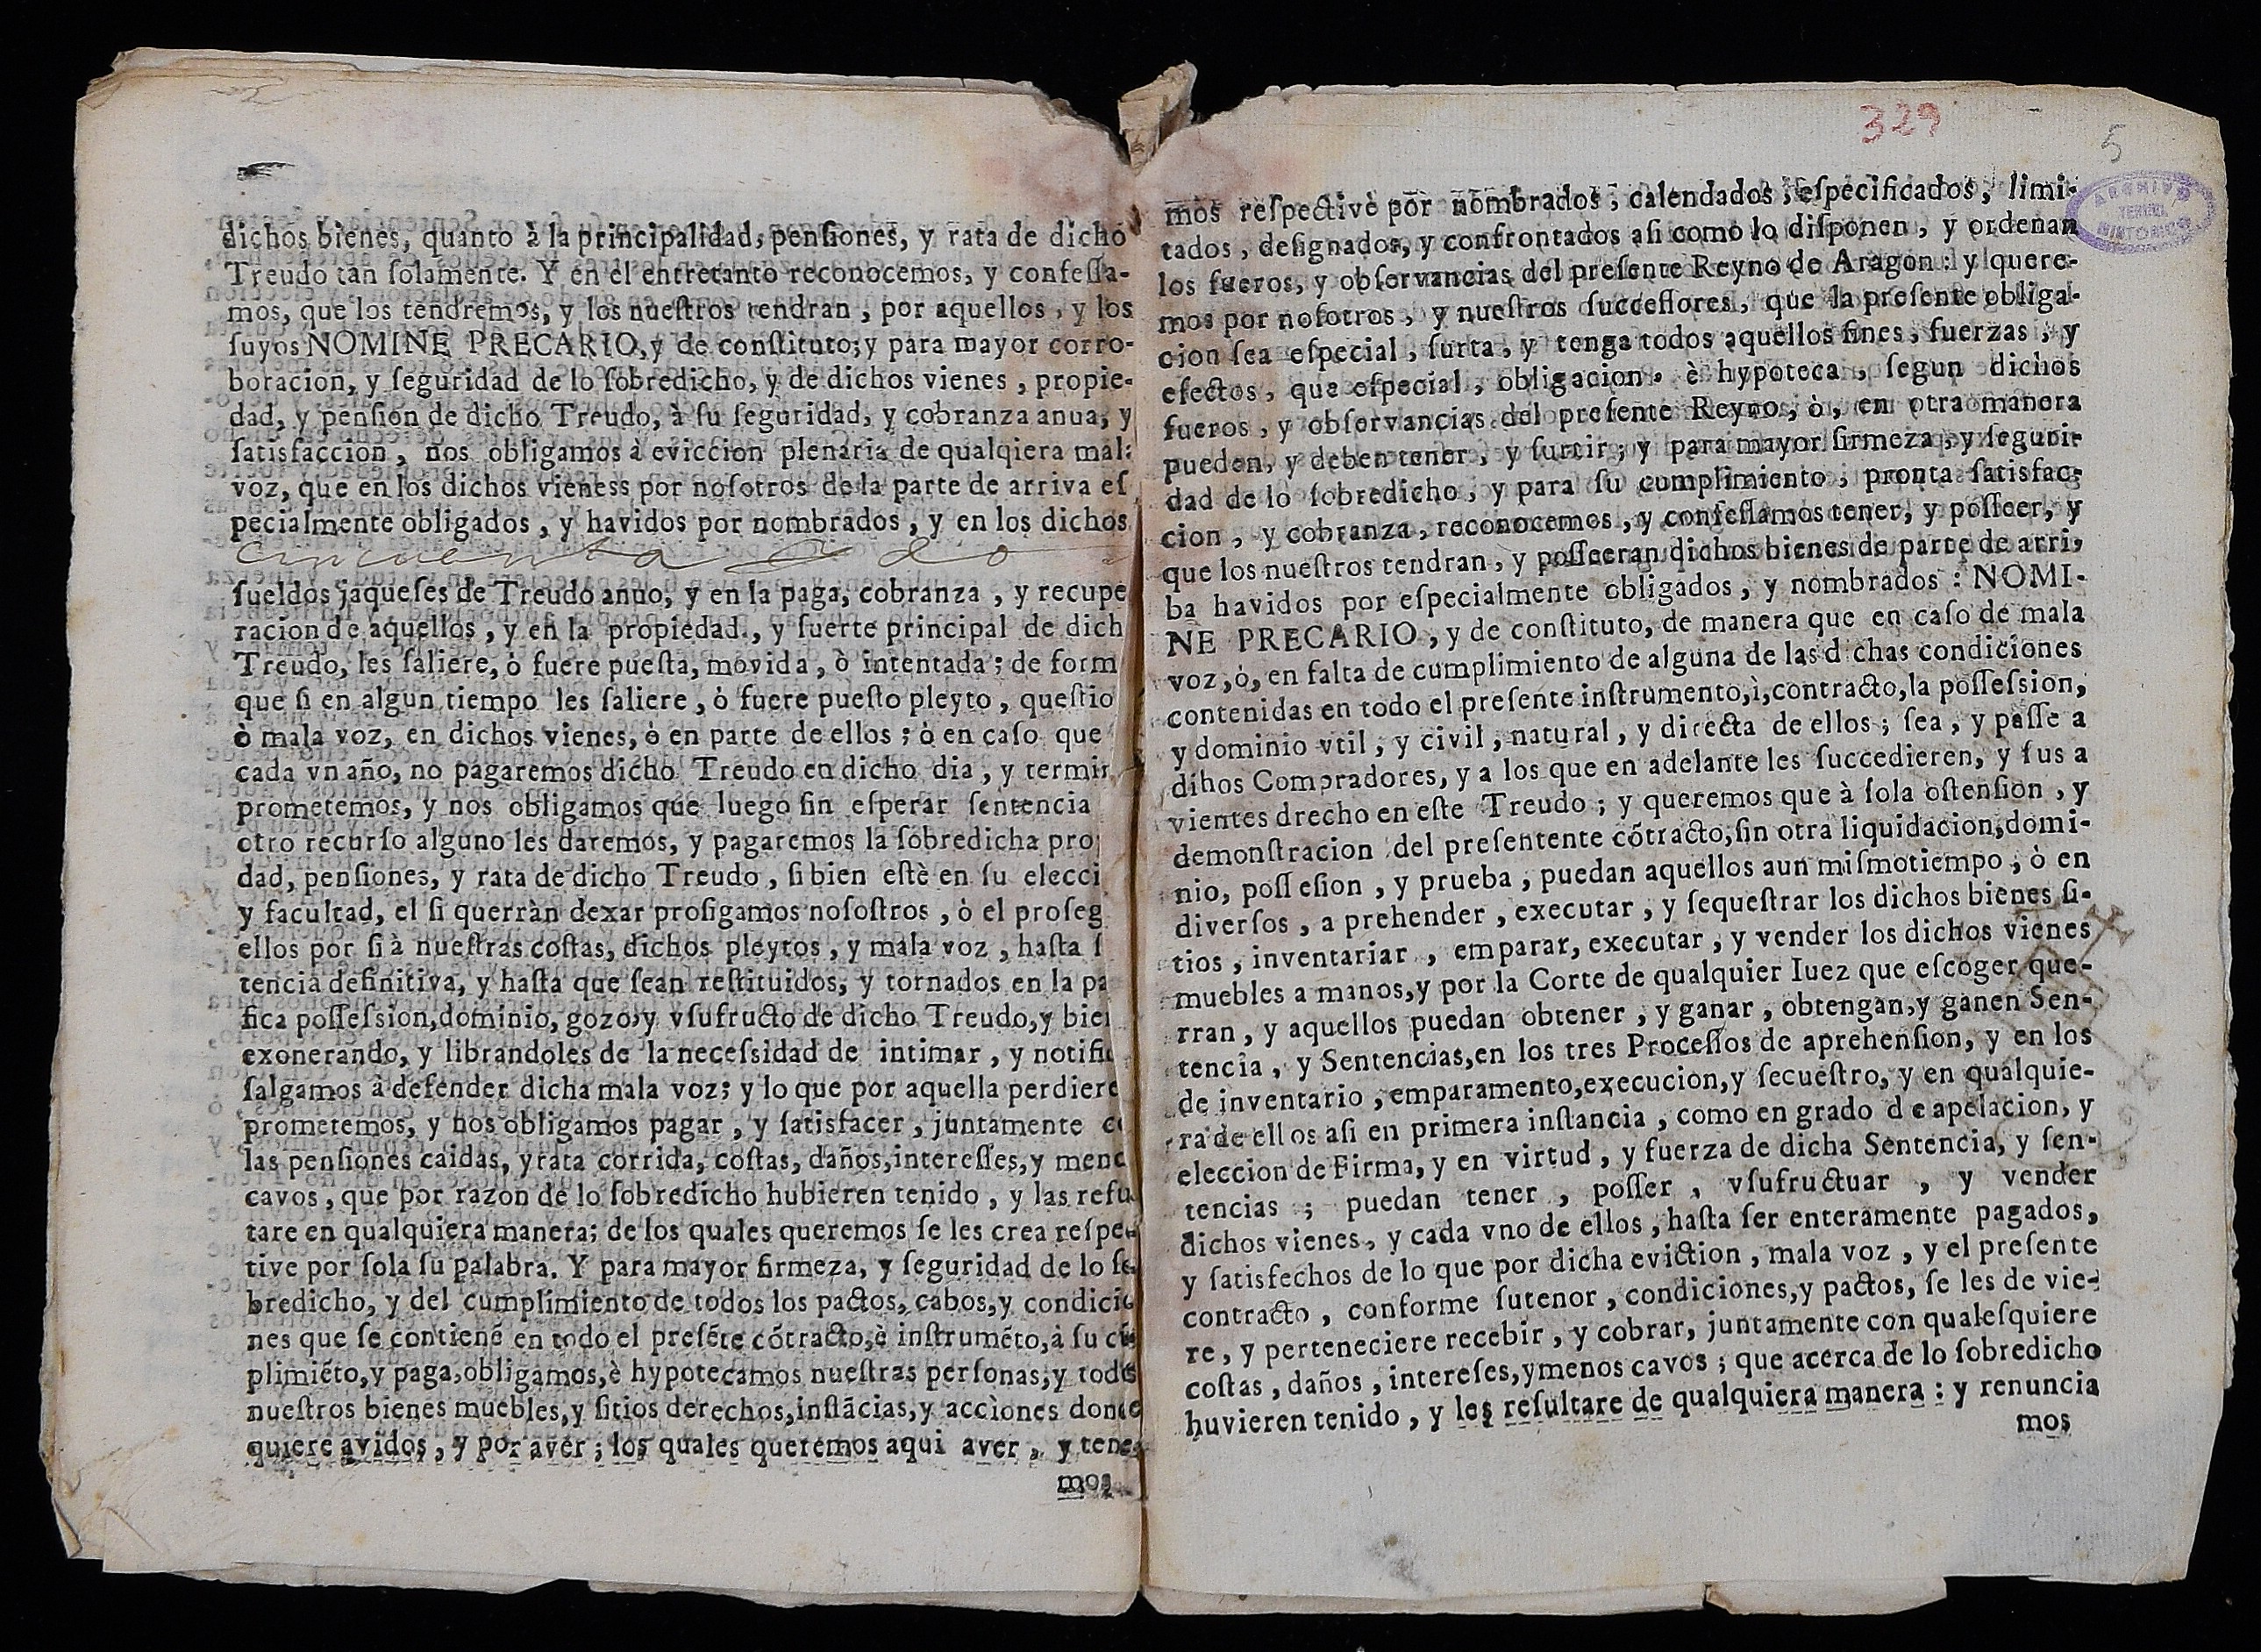 dichos bienes, quanto à la principalidad, pensiones, y rata de dicho
Treudo tan ſolamente. Y en el entretanto reconocemos, y confeſſa-
mos, que los tendremos, y los nueſtros tendran, por aquellos, y los
ſuyos NOMINE PRECARIO, y de conſtituto; y para mayor corro-
boracion, y ſeguridad de lo ſobredicho, y de dichos vienes, propie-
dad, y penſion de dicho Treudo, à ſu ſeguridad, y cobranza anua, y
ſatisfaccion, nos obligamos à eviccion plenaria de qualqiera mal:
voz, que en los dichos vieness por noſotros de la parte de arriva eſ
pecialmente obligados, y havidos por nombrados, y en los dichos
cincuenta y do
ſueldos jaqueſes de Treudo anuo, y en la paga, cobranza, y recupe
racion de aquellos, y en la propiedad, y ſuerte principal de dich
Treudo, les ſaliere, ò fuere pueſta, movida, ò intentada; de form
que ſi en algun tiempo les ſaliere, ò fuere pueſto pleyto, queſtio
ò mala voz, en dichos vienes, ò en parte de ellos; ò en caſo que
cada vn año, no pagaremos dicho Treudo en dicho dia, y termin
prometemos, y nos obligamos que luego ſin eſperar ſentencia
otro recurſo alguno les daremos, y pagaremos la ſobredicha pro
dad, penſiones, y rata de dicho Treudo, ſi bien eſtè en ſu elecci
y facultad, el ſi querràn dexar proſigamos noſoſtros, ò el proſeg
ellos por ſi à nueſtras coſtas, dichos pleytos, y mala voz, haſta ſ
tencia definitiva, y haſta que ſean reſtituidos, y tornados en la pa
fica poſſeſsion, dominio, gozo, y vſufructo de dicho Treudo, y bien
exonerando, y librandoles de la neceſsidad de intimar, y notific
ſalgamos à defender dicha mala voz; y lo que por aquella perdiere
prometemos, y nos obligamos pagar, y ſatisfacer, juntamente co
las penſiones caidas, y rata corrida, coſtas, daños, intereſſes, y menc
cavos, que por razon de lo ſobredicho hubieren tenido, y las reſu
tare en qualquiera manera; de los quales queremos ſe les crea reſpe
tive por ſola ſu palabra. Y para mayor firmeza, y ſeguridad de lo ſo
bredicho, y del cumplimiento de todos los pactos, cabos, y condicio
nes que ſe contienẽ en todo el preſẽte cõtracto, è inſtrumẽto, à ſu cũ
plimiẽto, y paga, obligamos, è hypotecamos nueſtras perſonas, y todos
nueſtros bienes muebles, y ſitios derechos, inſtãcias, y acciones donde
quiere avidos, y por aver; los quales queremos aqui aver, y tene
mos
329
5
ARCHIVO
TERUEL
HISTORICO
mos reſpectivè por nombrados, calendados, eſpecificados, limi-
tados, deſignados, y confrontados aſi como lo diſponen, y ordenan
los fueros, y obſervancias del preſente Reyno de Aragon: y quere-
mos por noſotros, y nueſtros ſucceſſores, que la preſente obliga-
cion ſea eſpecial, ſurta, y tenga todos aquellos fines, fuerzas, y
efectos, que eſpecial, obligacion, è hypoteca, ſegun dichos
fueros, y obſervancias del preſente Reyno, ò, en otra manera
pueden, y deben tener, y ſurtir; y para mayor firmeza, y ſeguri-
dad de lo ſobredicho, y para ſu cumplimiento, pronta ſatisfac-
cion, y cobranza, reconocemos, y confeſſamos tener, y poſſeer, y
que los nueſtros tendran, y poſſeeran dichos bienes de parte de arri-
ba havidos por eſpecialmente obligados, y nombrados: NOMI-
NE PRECARIO, y de conſtituto, de manera que en caſo de mala
voz, ò, en falta de cumplimiento de alguna de las d chas condiciones
contenidas en todo el preſente inſtrumento, ì, contracto, la poſſeſsion,
y dominio vtil, y civil, natural, y directa de ellos; ſea, y paſſe a
dihos Compradores, y a los que en adelante les ſuccedieren, y ſus a
vientes drecho en eſte Treudo; y queremos que à ſola oſtenſion, y
demonſtracion del preſentente cõtracto, ſin otra liquidacion, domi-
nio, poſſ eſion, y prueba, puedan aquellos aun miſmotiempo, ò en
diverſos, a prehender, executar, y ſequeſtrar los dichos bienes ſi-
tios, inventariar, emparar, executar, y vender los dichos vienes
muebles a manos, y por la Corte de qualquier Iuez que eſcoger que-
rran, y aquellos puedan obtener, y ganar, obtengan, y ganen Sen-
tencia, y Sentencias, en los tres Proceſſos de aprehenſion, y en los
de inventario, emparamento, execucion, y ſecueſtro, y en qualquie-
ra de ellos aſi en primera inſtancia, como en grado de apelacion, y
eleccion de Firma, y en virtud, y fuerza de dicha Sentencia, y ſen-
tencias; puedan tener, poſſer, vſufructuar, y vender
dichos vienes, y cada vno de ellos, haſta ſer enteramente pagados,
y ſatisfechos de lo que por dicha eviction, mala voz, y el preſente
contracto, conforme ſutenor, condiciones, y pactos, ſe les de vie-
re, y perteneciere recebir, y cobrar, juntamente con qualeſquiere
coſtas, daños, intereſes, ymenos cavos; que acerca de lo ſobredicho
huvieren tenido, y les reſultare de qualquiera manera: y renuncia
mos